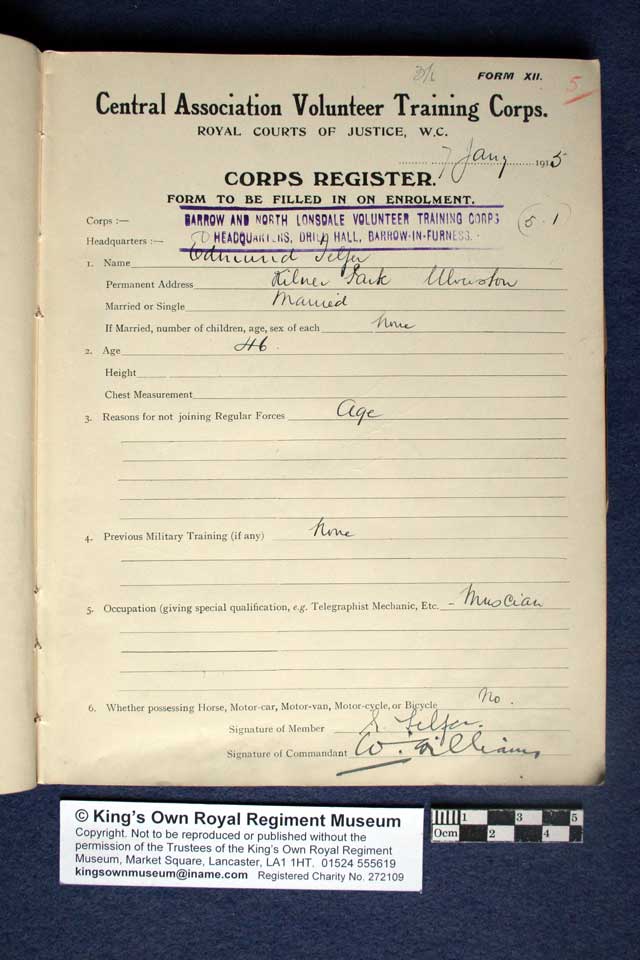 3/6 FORM XII. 5
Central Association Volunteer Training Corps.
ROYAL COURTS OF JUSTICE, W.C.
7 Jany 1915
CORPS REGISTER.
FORM TO BE FILLED IN ON ENROLMENT.
Corps :— BARROW AND NORTH LONSDALE VOLUNTEER TRAINING CORPS 5.1
Headquarters :— HEADQUARTERS, DRILL HALL, BARROW-IN-FURNESS.
1. Name Edmund Telfer
Permanent Address Kilner Park Ulverston
Married or Single Married
If Married, number of children, age, sex of each None
2. Age 46.
Height
Chest Measurement
3. Reasons for not joining Regular Forces Age
4. Previous Military Training (if any) None
5. Occupation (giving special qualification, e.g. Telegraphist Mechanic, Etc. - Muscian
6. Whether possessing Horse, Motor-car, Motor-van, Motor-cycle, or Bicycle No.
Signature of Member E. Telfer.
Signature of Commandant W. Williams
© King's Own Royal Regiment Museum
Copyright. Not to be reproduced or published without the
permission of the Trustees of the King's Own Royal Regiment
Museum, Market Square, Lancaster, LA1 1HT. 01524 555619
kingsownmuseum@iname.com Registered Charity No. 272109
1 3 5
0cm 2 4